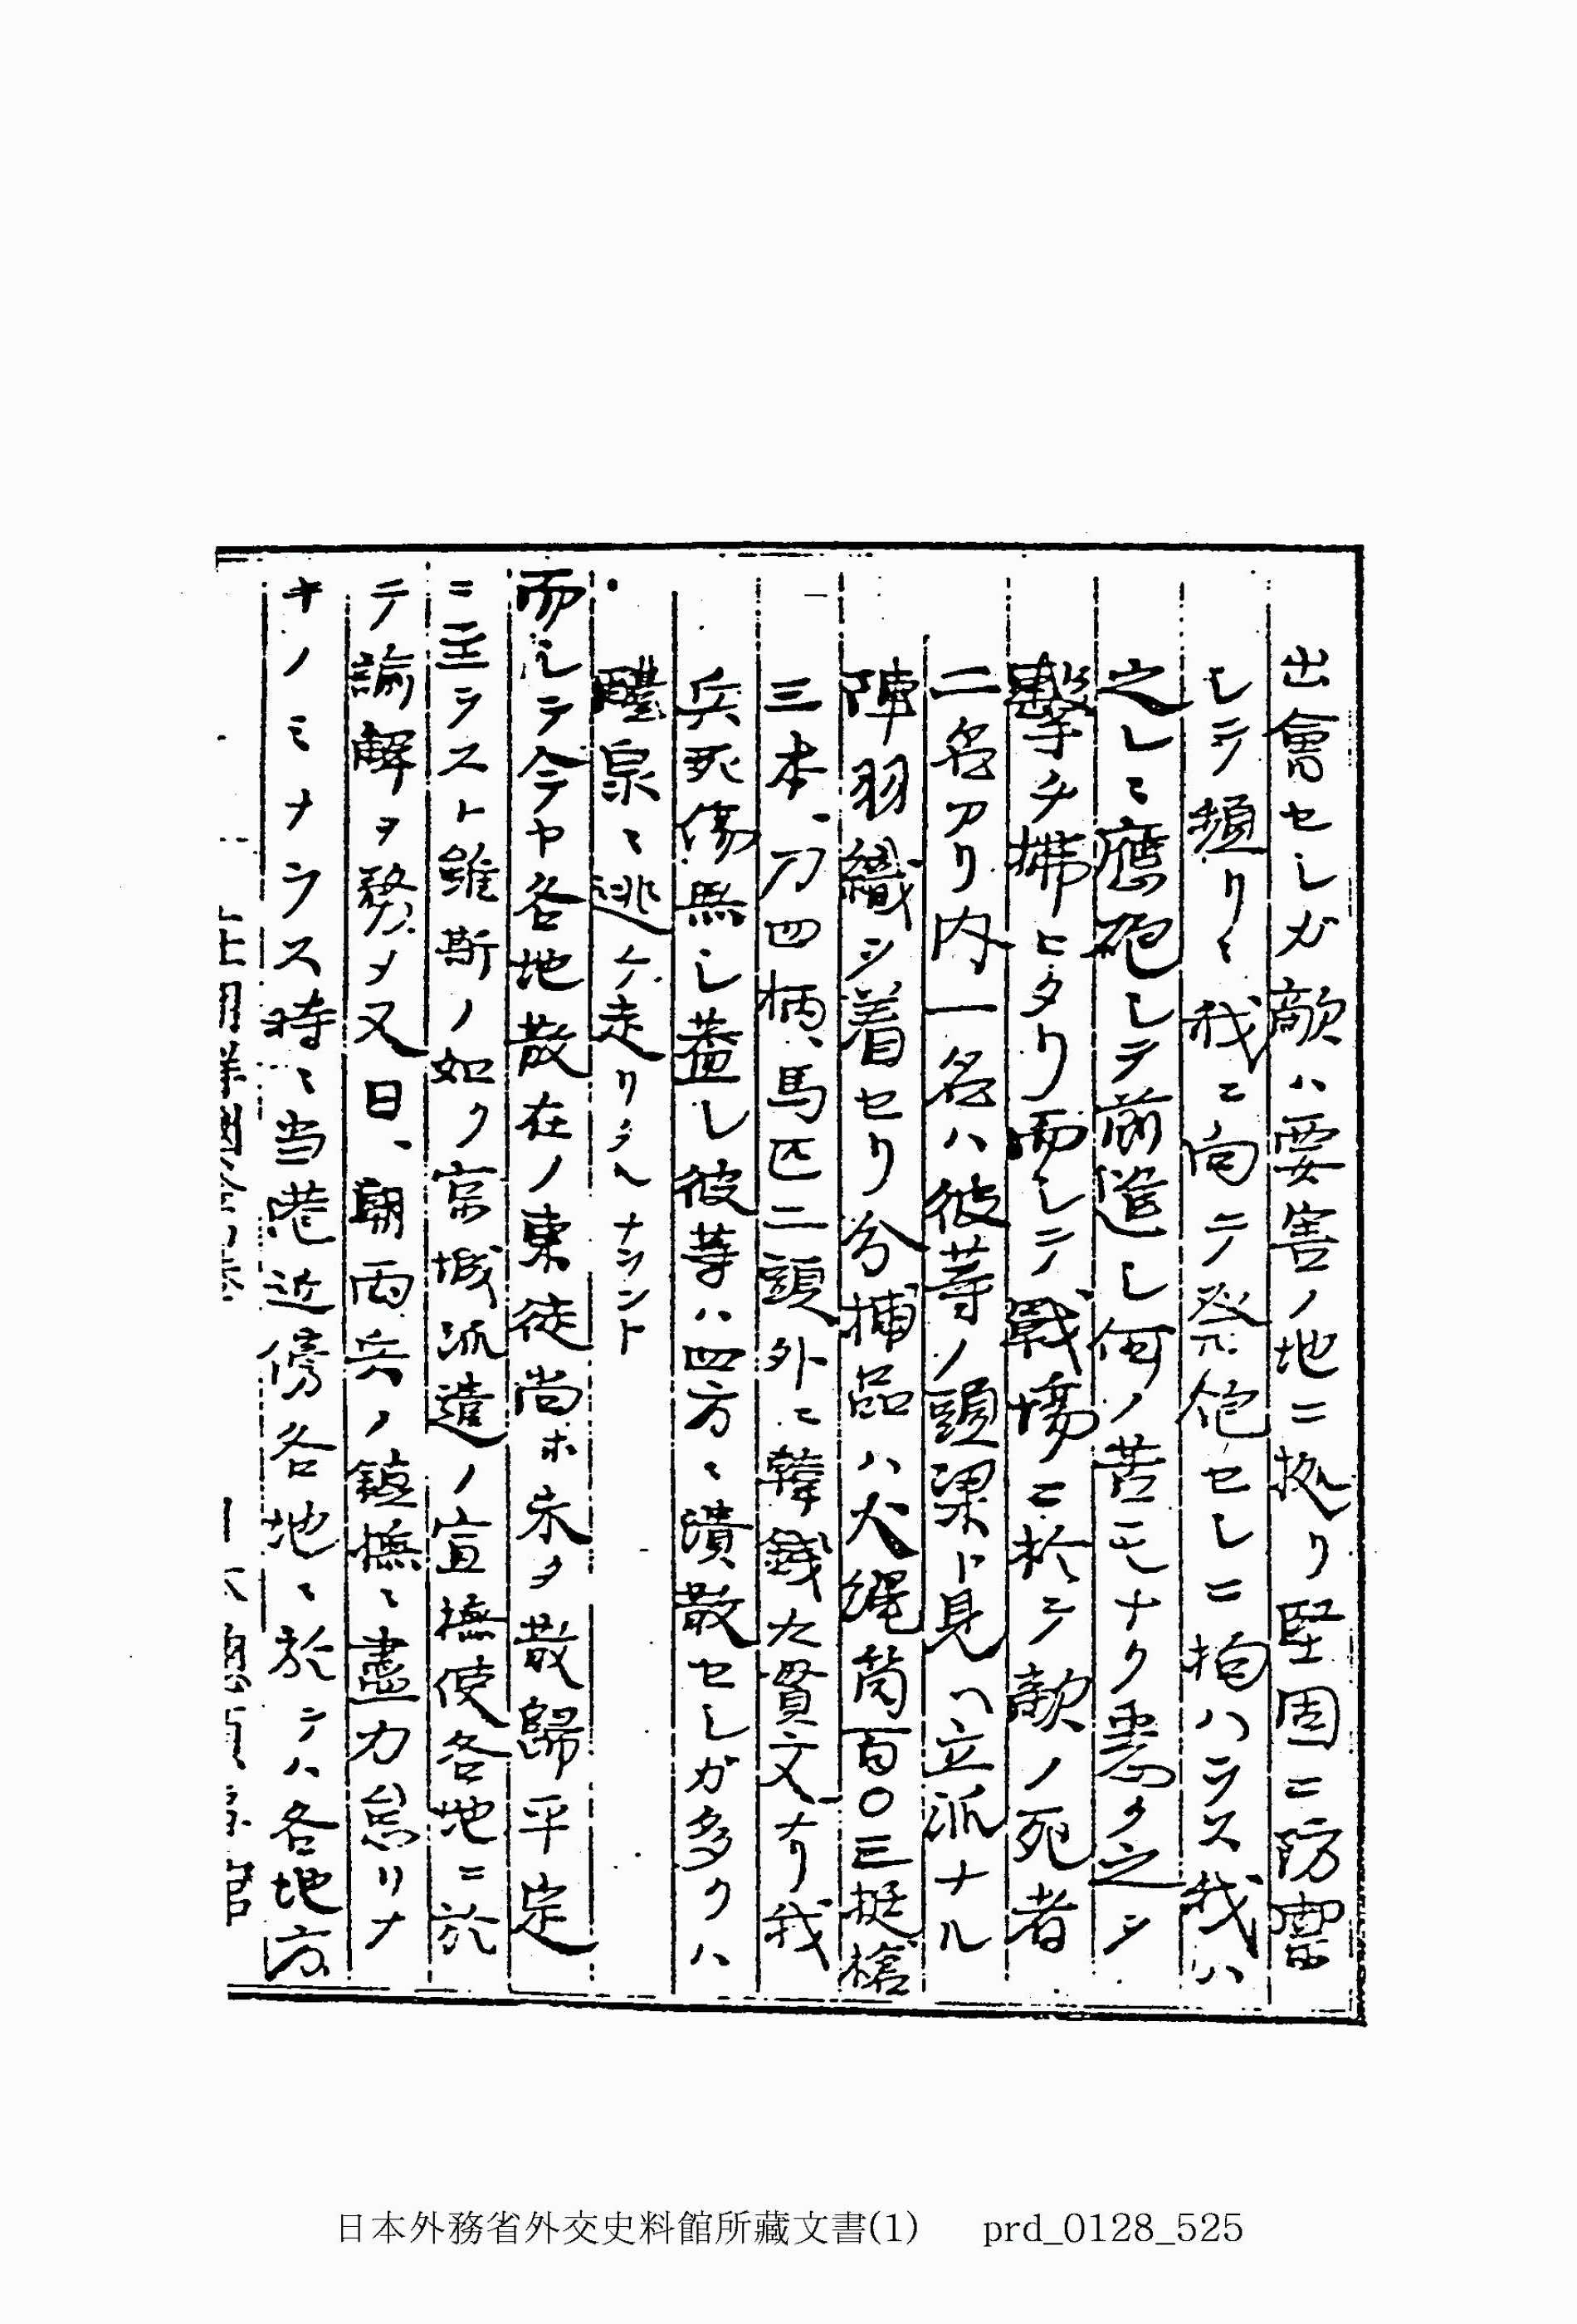 出會セシガ敵ハ要害ノ地ニ拠リ堅固ニ防禦
シテ頻リニ我ニ向テ発砲セシニ拘ハラス我ハ
之レニ應砲シテ前進シ何ノ苦モナク悪ク之ヲ
撃チ拂ヒタリ而シテ戰塲ニ於テ敵ノ死者
二名アリ内一名ハ彼等ノ頭梁ト見ヘ立派ナル
陣羽織ヲ着セリ分捕品ハ火縄筒百〇三挺槍
三本、刀四柄、馬匹二頭外ニ韓銭九貫文ナリ我
兵死傷無シ蓋シ彼等ハ四方ニ潰散セシガ多クハ
醴泉ニ逃ケ走リタルナラント
而シテ今ヤ各地散在ノ東徒尚ホ未タ散歸平定
ニ至ラスト雖斯ノ如ク京城派遣ノ宣撫使各地ニ於
テ諭解ヲ務メ又日、朝両兵ノ鎮撫ニ盡力怠リナ
キノミナラス時ニ当港近傍各地ニ於テハ各地方
在朝鮮國釜山港 日本總領事館
日本外務省外交史料館所藏文書(1) prd_0128_525